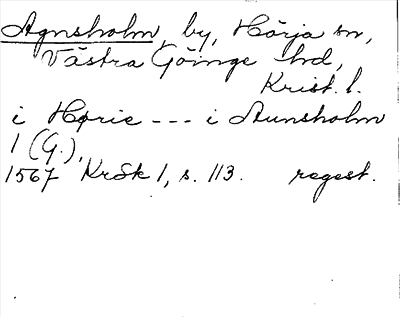 Agnsholm, by, Hörja sn,
Västra Göinge hd,
Krist. l.
i Hørie --- i Aunsholm
1 (G.),
1567 Krøk 1, s. 113. regest.